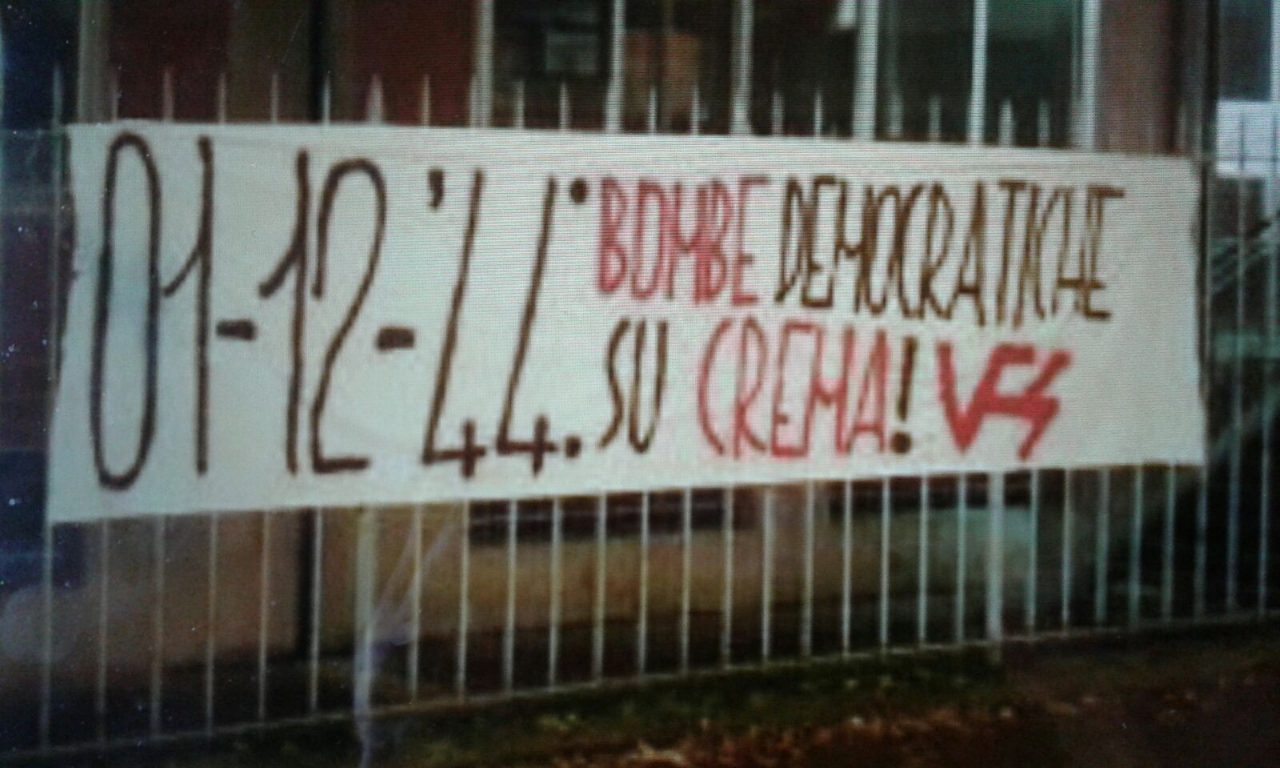 01-12-'44: BOMBE DEMOCRATICHE
SU CREMA! VFS